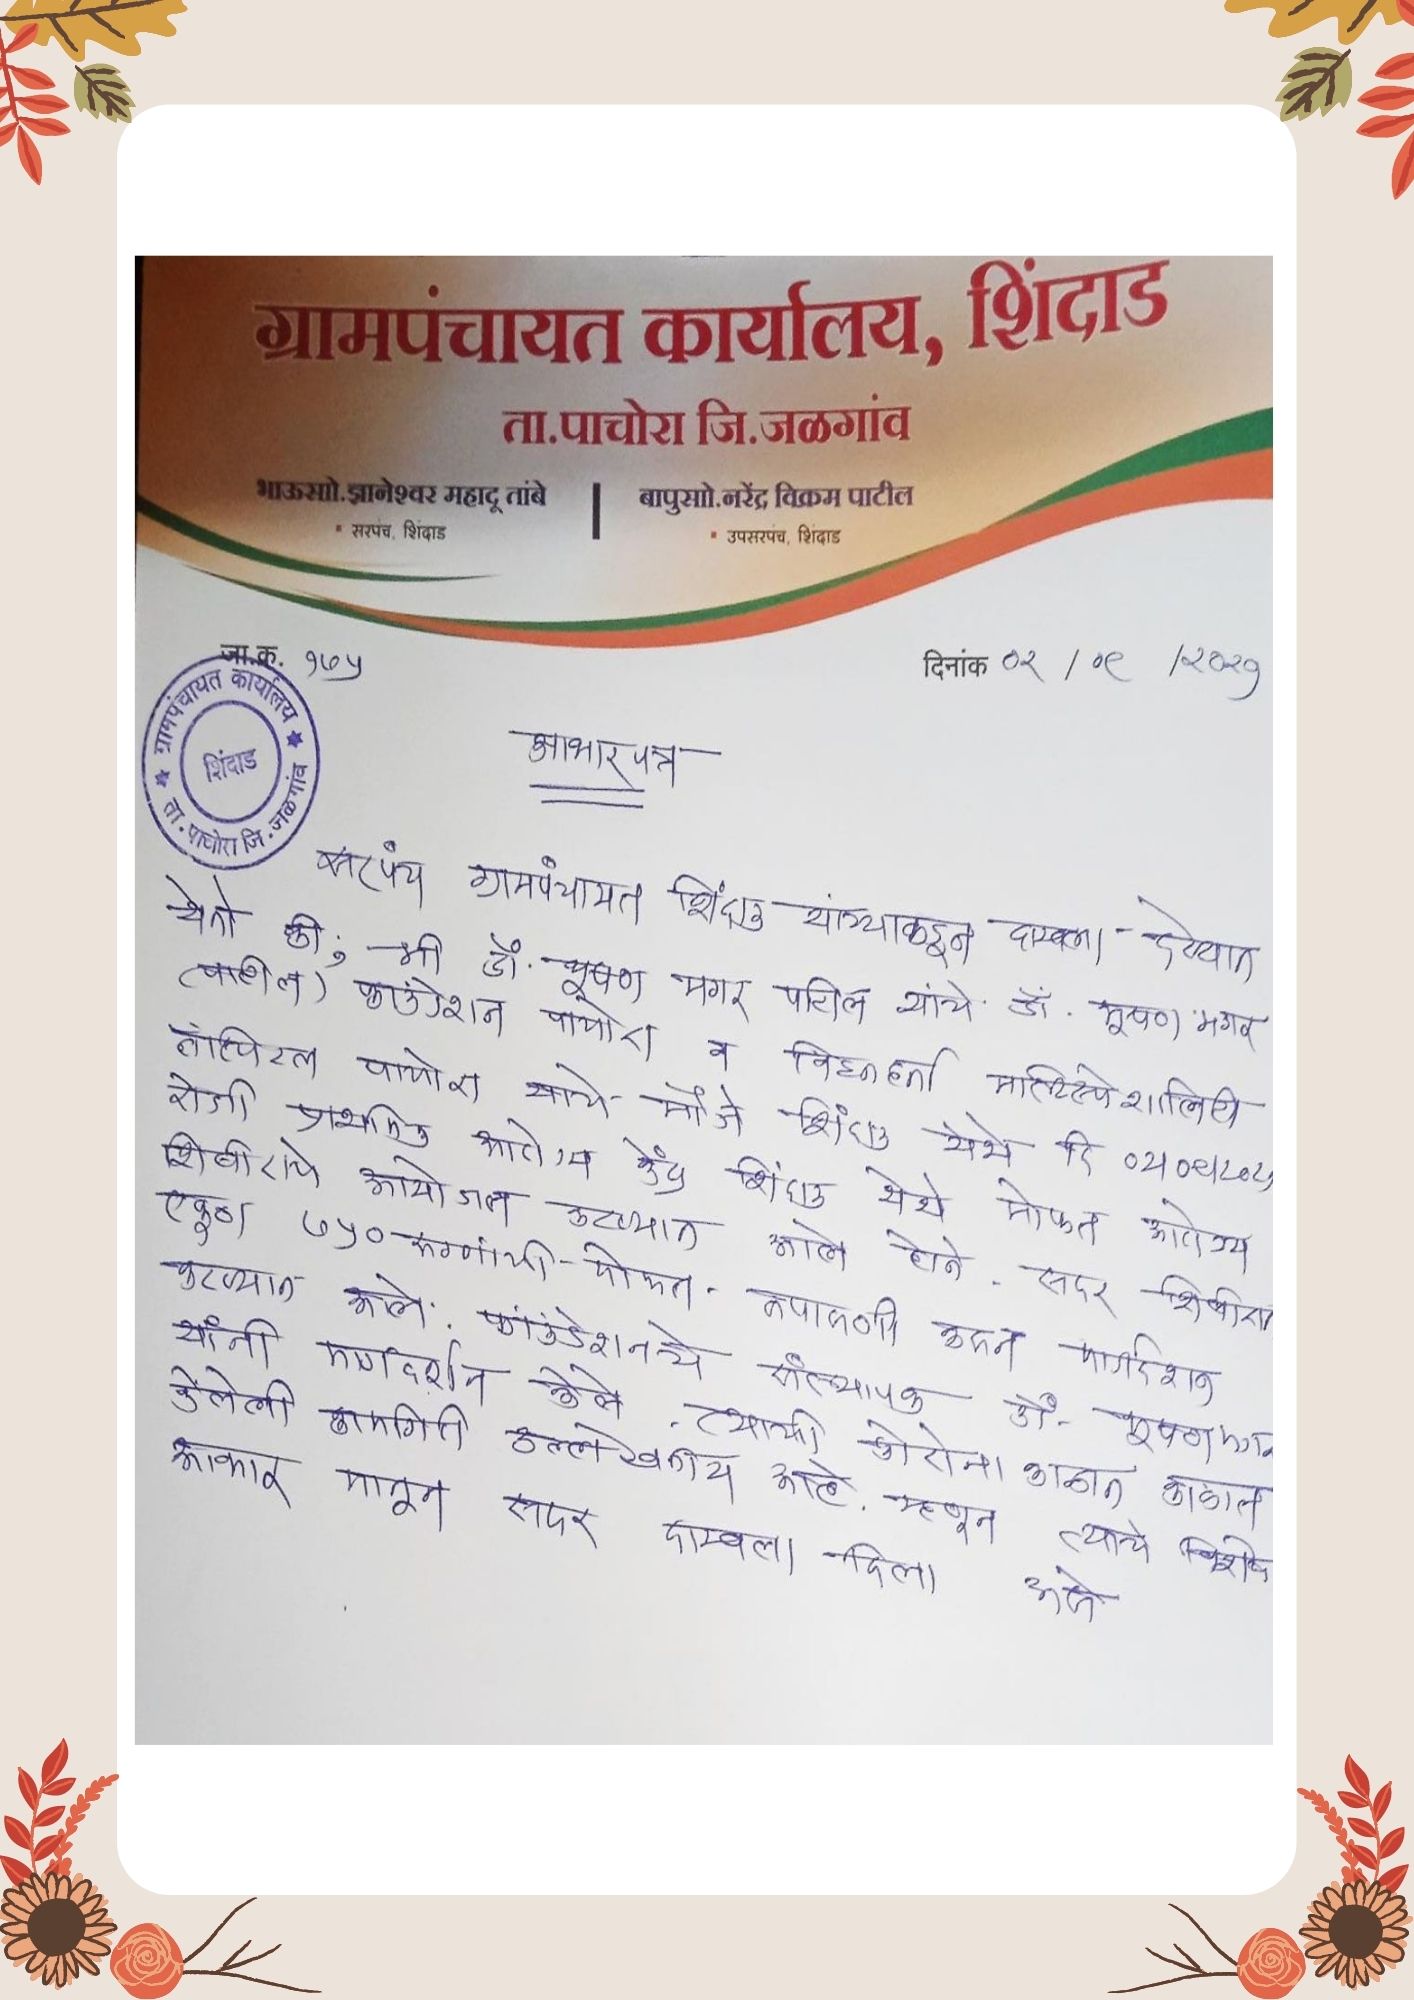 ग्रामपंचायत कार्यालय, शिंदाड
ता.पाचोरा जि.जळगांव
भाऊसाो.ज्ञानेश्वर महादू तांबे
सरपंच, शिंदाड
बापुसाो.नरेंद्र विक्रम पाटील
उपसरपंच, शिंदाड
जा.क्र. १७५
दिनांक ०२ / ०९ /२०२१
ग्रामपंचायत कार्यालय
शिंदाड
ता.पाचोरा जि.जळगांव
आभारपत्र
सरपंच ग्रामपंचायत शिंदाड यांच्याकडून दाखला देण्यात
येतो की, श्री डॉ. भूषण मगर पाटील यांचे डॉ. भूषण मगर
(पाटील) फाउंडेशन पाचोरा व विघ्नहर्ता मल्टिस्पेशालिटी
हॉस्पिटल पाचोरा यांचे मौजे शिंदाड येथे दि
रोजी प्राथमिक आरोग्य केंद्र शिंदाड येथे मोफत आरोग्य
शिबीराचे आयोजन करण्यात आले होते. सदर शिबीरात
एकूण ७५० रुग्णांची मोफत तपासणी करुन मार्गदर्शन
करण्यात आले. फांउंडेशनचे संस्थापक डॉ. भूषण मगर
यांनी मार्गदर्शन केले. त्यांची कोरोना काळात
केलेली कामगिरी उल्लेखनीय आहे. म्हणून त्यांचे विशेष
आभार मानून सदर दाखला दिला असे